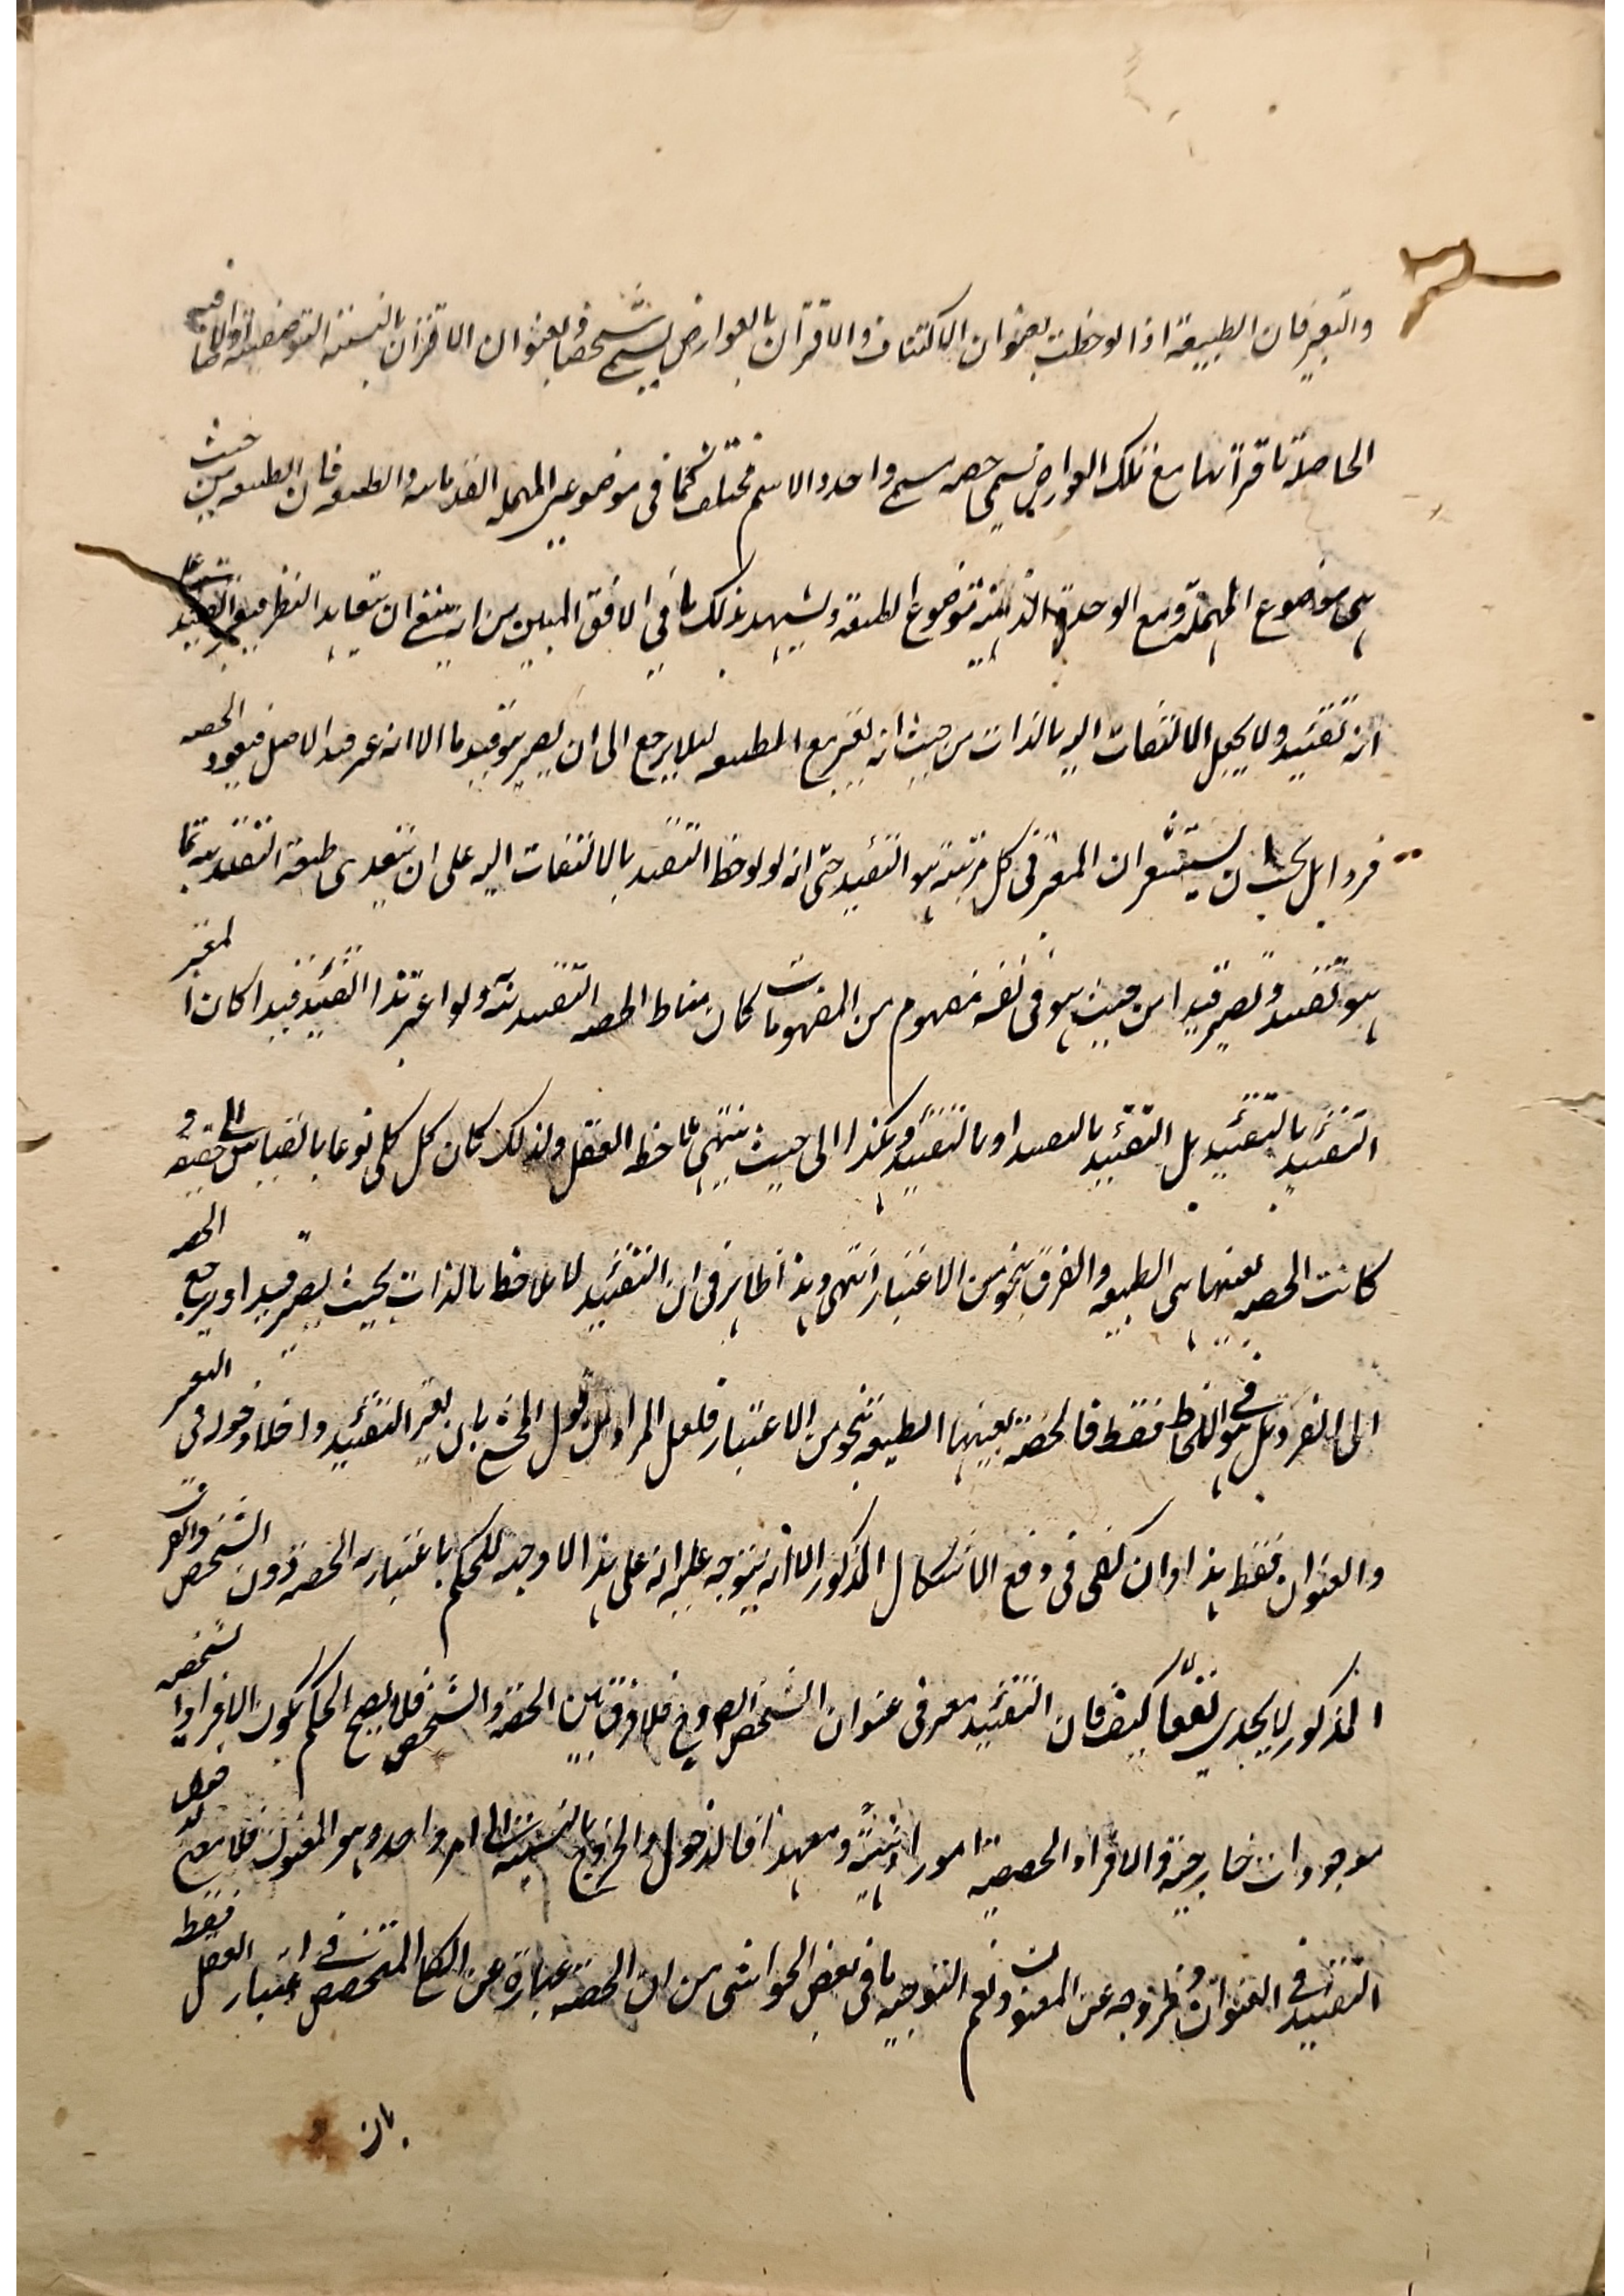 والتعبير فان الطبيعة اذا لوحظت بعنوان الاكتناف والاقتران بالعوارض يسمى شخصا وبعنوان الاقتران بالنسبة التوصيفية او الاضافية
الحاصلة باقترانها مع تلك العوارض تسمى حصه فالمسمى واحد والاسم مختلف كما فى موضوعى المهملة القدمائيه والطبعيه فان الطبيعه من حيث
هى موضوع المهملة ومع الوحدة الذهنية موضوع الطبعية ويشهد بذلك ما فى الافق المبين من انه ينبغى ان يتعاهد النظر فيه التقييد على
انه تقييد ولا يجعل الالتفات اليه بالذات من حيث انه يعتبر مع الطبيعه لئلا يرجع الى ان يصير هو قيدا ما الا انه غير قيد الاصل فيعود الحصه
فردا بل يجب ان يستشعر ان المعتبر فى كل مرتبة هو التقييد حتى انه لو لوحظ التقييد بالالتفات اليه على ان يتعدى طبيعة التقييديه بما
هو تقييد ويصير قيدا من حيث هو فى نفسه مفهوم من المفهومات كان مناط الحصه التقييد به ولو اعتبر هذا التقييد قيدا كان المعتبر
التقييد بالتقييد بل التقييد بالتقييد او بالتقييد وهكذا الى حيث ينتهى ملاحظة العقل ولذلك كان كل كلى نوعا بالقياس الى حصصه و
كانت الحصه بعينها هى الطبيعه والفرق بنحو من الاعتبار انتهى وهذا ظاهر فى ان التقييد لا يلاحظ بالذات بحيث يصير قيدا ويرجع الحصه
الى الفرد بل هو فى اللحاظ فقط فالحصة بعينها الطبيعه بنحو من الاعتبار فلعل المراد من قول المحشى بان يعتبر التقييد داخلا دخوله فى التعبير
والعنوان فقط هذا وان كفى فى دفع الاشكال المذكور الا انه يتوجه عليه انه على هذا لا وجه للحكم باعتبارية الحصة دون الشخص والفرق
المذكور لا يجدى نفعا كيف فان التقييد معتبر فى عنوان الشخص ايضا فح فلا فرق بين الحصة والشخص فلا يصح الحكم بكون الافراد الشخصيه
موجودات خارجية والافراد الحصصية امورا ذهنية ومع هذا فالدخول والخروج بالنسبة الى امر واحد وهو المعنون فلا معنى لدخول
التقييد فى العنوان وخروجه عن المعنون ونعم التوجيه ما فى بعض الحواشى من ان الحصة عبارة عن الكلى المتخصص فى اعتبار العقل فقط
بان